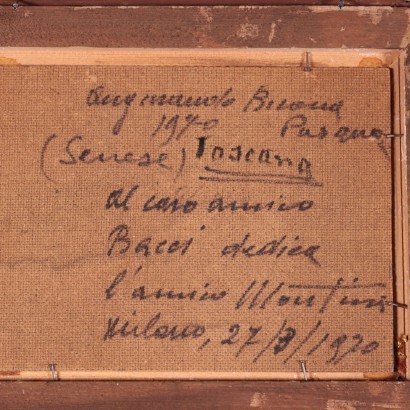 Augurando Buona
1970 Pasqua
(Senese) Toscana
Al caro amico
Bacci dedica
l'amico Montini
Milano, 27/3/1970